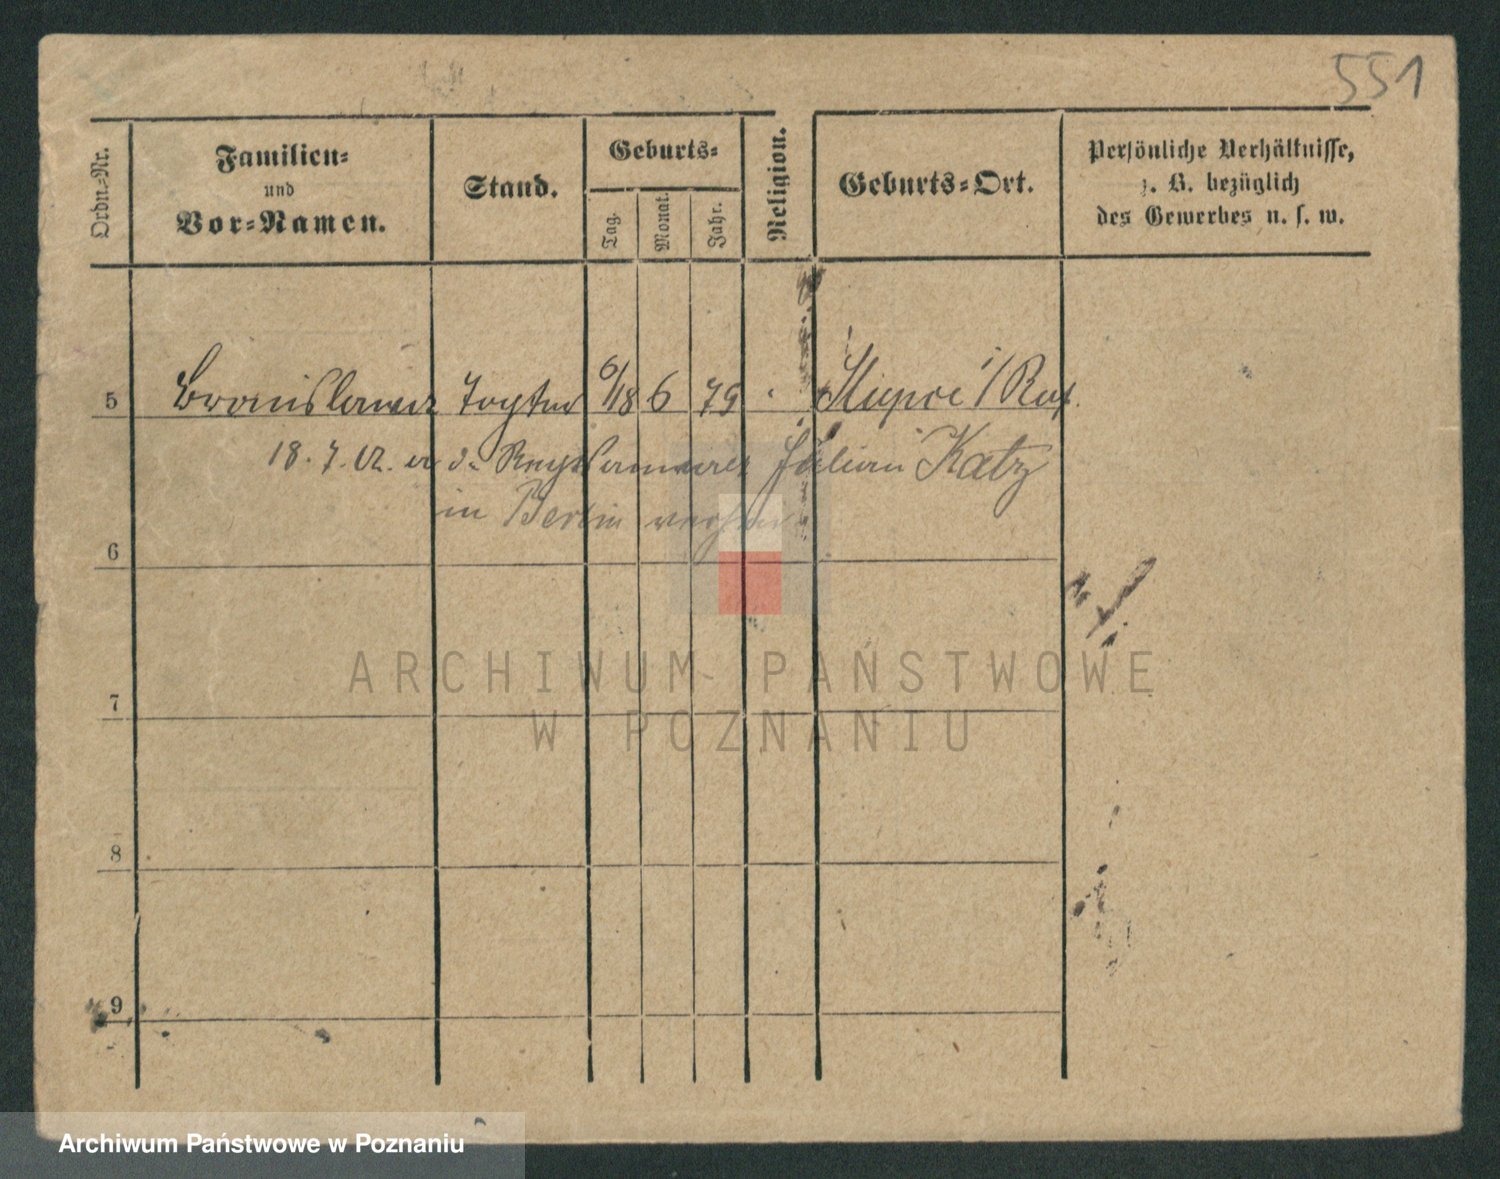 551
Ordn.-Nr.
Familien-
und
Vor-Namen.
Stand.
Geburts-
Tag.
Monat.
Jahr.
Religion.
Geburts-Ort.
Persönliche Verhältnisse,
z. B. bezüglich
des Gewerbes u. s. w.
5 Tochter 6/18 6 79 "
18. 7. 02. an Julian Katz
in Berlin
6
7
8
9
ARCHIWUM PAŃSTWOWE
W POZNANIU
Archiwum Państwowe w Poznaniu